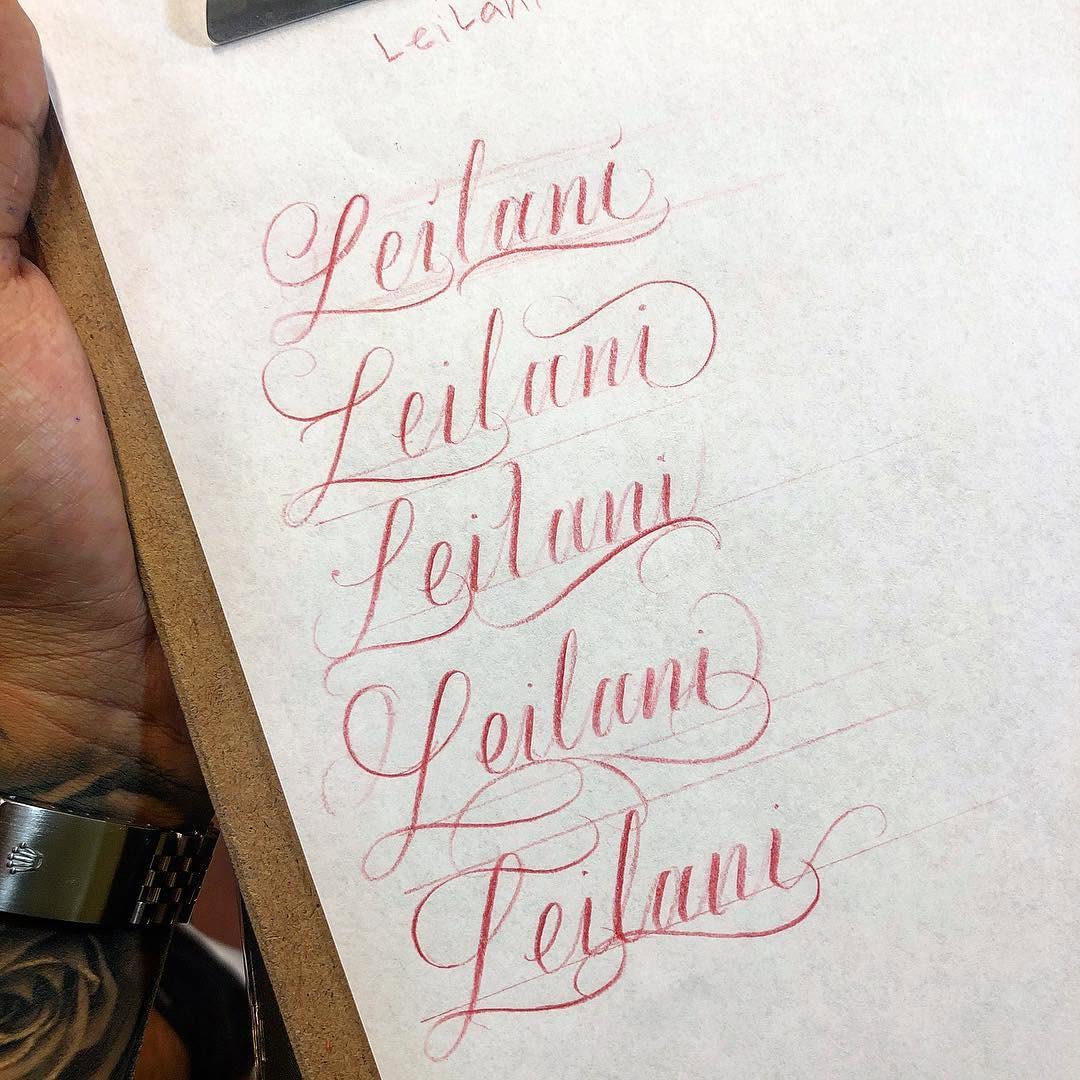 LeiLani
Leilani
Leilani
Leilani
Leilani
Leilani